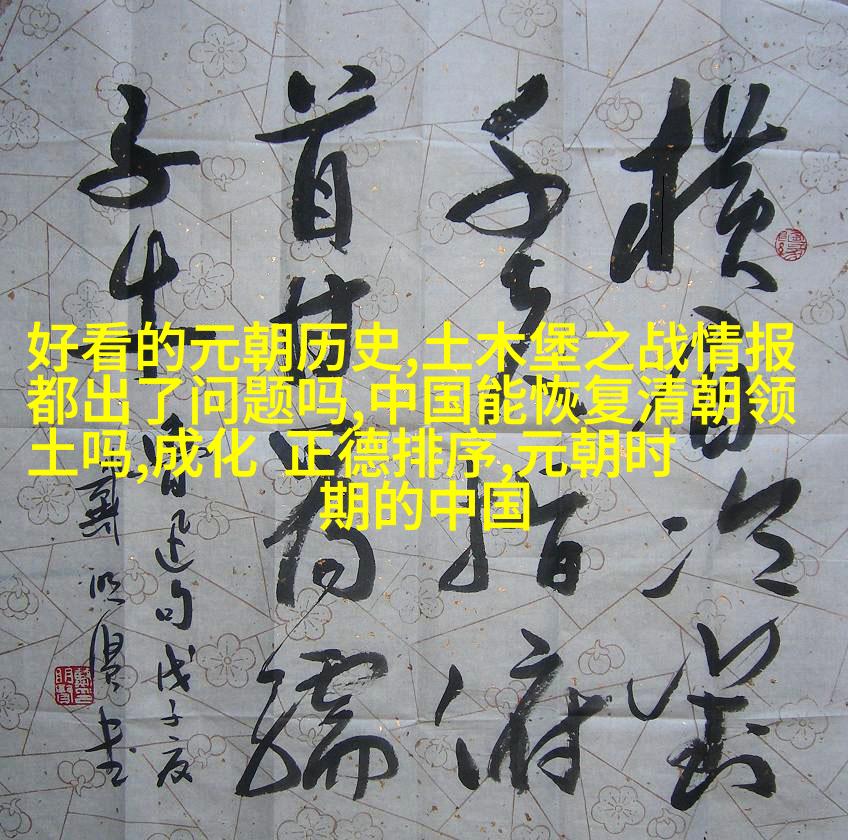 好看的元朝历史,土木堡之战情报
都出了问题吗,中国能恢复清朝领
土吗,成化 正德排序,元朝时
期的中国
横眉冷对
千夫指俯
首甘为孺
子牛
鲁迅句戊子夏
明俊书